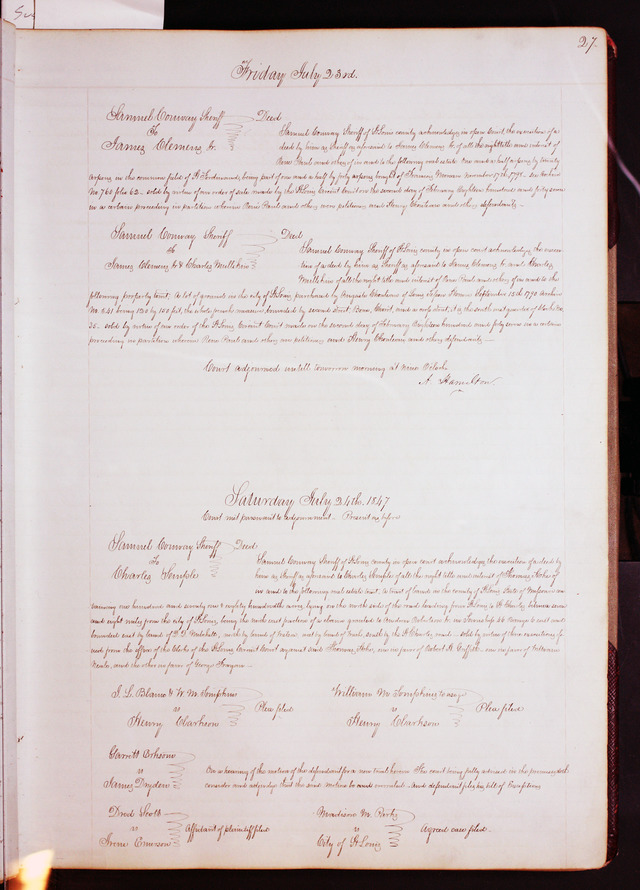 27.
Friday July 23rd.
Samuel Conway Sheriff
to
James Clemens Jr.
Deed
Samuel Conway Sheriff of St Louis county acknowledges in open Court the execution of a
deed by him as Sheriff as aforesaid to James Clemens Jr. of all the right title and interest of
Rene Paul and others of in and to the following real estate. One and a half arpens by twenty
arpens in the common field of St Ferdinand, being part of one and a half by forty arpens
No 760 folio 62. sold by virtue of an order of sale made by the St Louis Circuit Court on the second day of February Eighteen hundred and forty seven
in a certain proceeding in partition wherein Rene Paul and others are petitioners and Henry Chouteau and others defendants.
Samuel Conway Sheriff
to
James Clemens Jr & Charles Mullikin
Deed
Samuel Conway Sheriff of St Louis county in open court acknowledges the execu-
tion of a deed by him as Sheriff as aforesaid to James Clemens Jr. and Charles
Mullikin of all the right title and interest of Rene Paul and others of in and to the
following property to wit; A lot of ground in the city of St Louis, purchased by Auguste Chouteau of September 15th 1790
No 2.41 being 120 by 150 feet, the whole formerly bounded by second Street, it is the south east quarter of block No
35. sold by virtue of an order of the St Louis Circuit Court made on the second day of February Eighteen hundred and forty seven in a certain
proceeding in partition wherein Rene Paul and others are petitioners and Henry Chouteau and others defendants.
Court adjourned untill tomorrow morning at nine O'clock
A. Hamilton
Saturday July 24th. 1847
Court met pursuant to adjournment. Present as before
Samuel Conway Sheriff
to
Charles Semple
Deed
Samuel Conway Sheriff of St Louis county in open court acknowledges the execution of a deed by
him as Sheriff as aforesaid to Charles Semple of all the right title and interest of Thomas
in and to the following real estate to wit, a tract of land in the county of St Louis State of Missouri con-
taining one hundred and seventy one & eighty hundredths acres, lying on the north side of the road leading from St Louis to St Charles, between seven
and eight miles from the city of St Louis, being the north east portion of a claim granted to Andrew in Township 46 Range 6 east and
bounded east by land of north by land of west by land of south by the St Charles road. sold by virtue of three executions is-
sued from the office of the Clerk of the St Louis Circuit Court against said Thomas one in favor of Robert one in favor of William
and the other in favor of George
J. L. Blaine & W. M. Tompkins
vs
Henry Clarkson
Plea filed
William M. Tompkins to use
vs
Henry Clarkson
Plea filed
Garrett
vs
James Dryden
On a hearing of the motion of the defendant for a new trial herein the court being fully advised in the premises doth
consider and adjudge that the said motion be and overruled. And defendant files his bill of Exceptions
Dred Scott
vs
Irene Emerson
Affidavit of plaintiff filed
Madison M.
vs
City of St Louis
Agreed case filed.